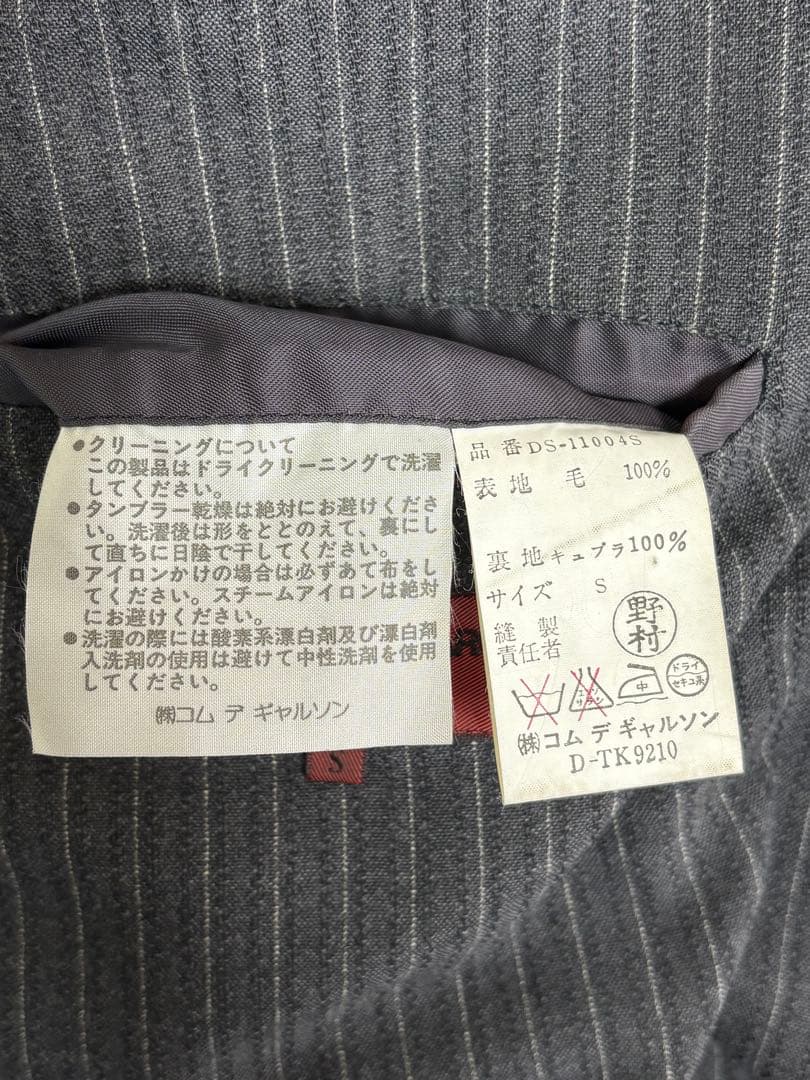 ●クリーニングについて
この製品はドライクリーニングで洗濯
してください。
●タンブラー乾燥は絶対にお避けくださ
い。洗濯後は形をととのえて、裏にし
て直ちに日陰で干してください。
●アイロンかけの場合は必ずあて布をし
てください。スチームアイロンは絶対
にお避けください。
●洗濯の際には酸素系漂白剤及び漂白剤
入洗剤の使用は避けて中性洗剤を使用
してください。
㈱コム デ ギャルソン
品番 DS-11004S
表地 毛 100%
裏地 キュプラ 100%
サイズ S
縫製
責任者
野村
エンソ
サラシ
中
ドライ
セキユ系
㈱コム デ ギャルソン
D-TK9210
S